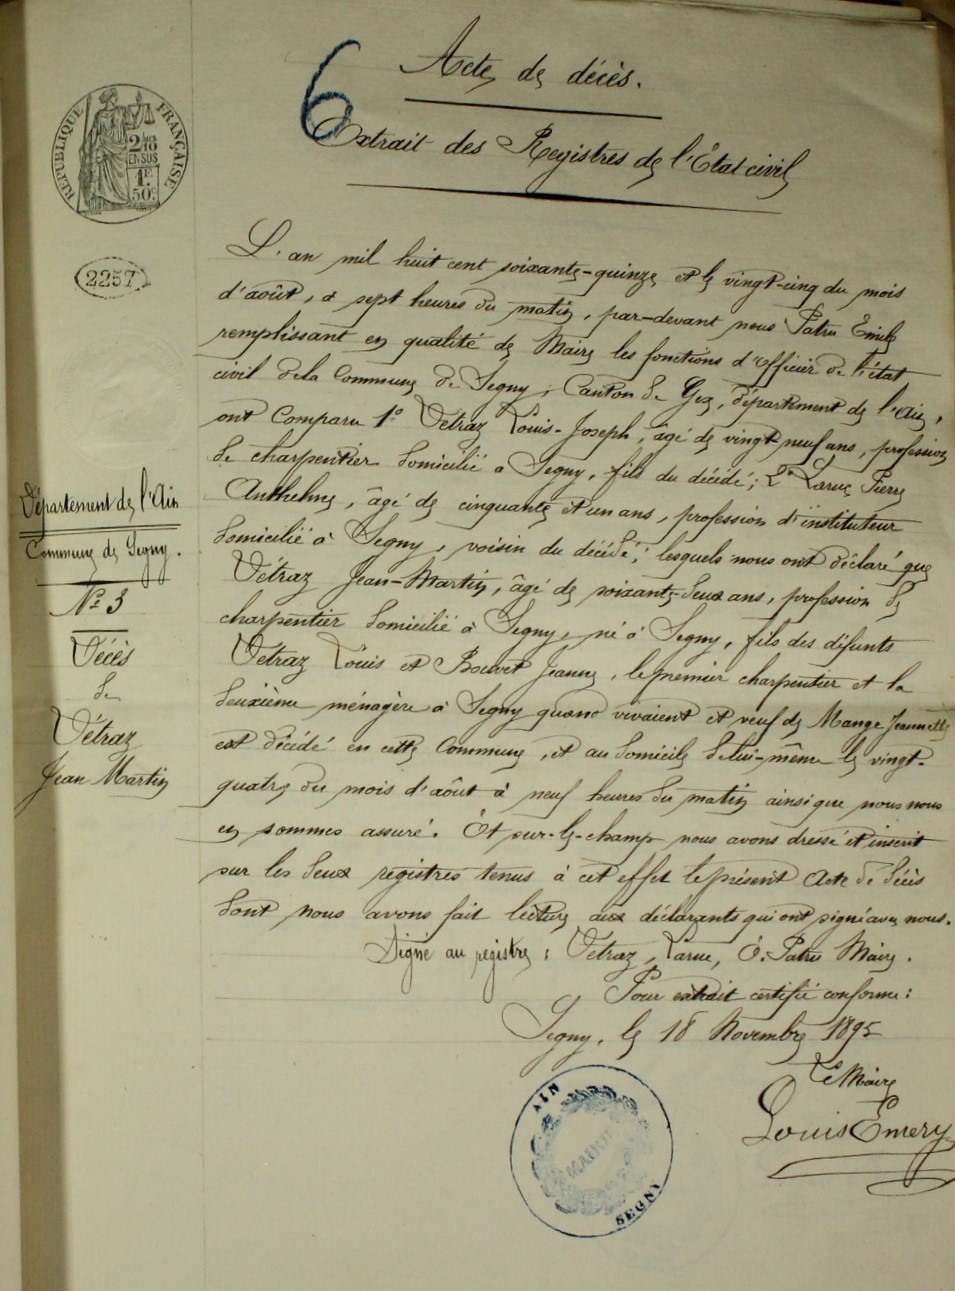 6
Acte de décès.
Extrait des Registres de l'État civil
RÉPUBLIQUE FRANÇAISE
2/10
EN SUS
1F
50c
2257
Département de l'Ain
Commune de Segny.
No 3
Décès
de
Vétraz
Jean Martin
L'an mil huit cent soixante-quinze et le vingt-cinq du mois
d'août, à sept heures du matin, par-devant nous Patru Emile
remplissant en qualité de Maire les fonctions d'officier de l'état
civil de la Commune de Segny, Canton de Gex, département de l'Ain,
ont comparu 1o Vétraz Louis-Joseph, âgé de vingt neuf ans, profession
de charpentier domicilié à Segny, fils du décédé; 2o Larue Pierre
Anthelme, âgé de cinquante et un ans, profession d'instituteur
domicilié à Segny, voisin du décédé; lesquels nous ont déclaré que
Vétraz Jean-Martin, âgé de soixante-deux ans, profession de
charpentier domicilié à Segny, né à Segny, fils des défunts
Vétraz Louis et Bouvet Jeanne, le premier charpentier et la
deuxième ménagère à Segny quand vivaient et veuf de Mange Jeannette
est décédé en cette Commune, et au domicile de lui-même le vingt-
quatre du mois d'août à neuf heures du matin ainsi que nous nous
en sommes assuré. Et sur-le-champ nous avons dressé et inscrit
sur les deux registres tenus à cet effet le présent acte de décès
dont nous avons fait lecture aux déclarants qui ont signé avec nous.
Signé au registre: Vétraz, Larue, E. Patru Maire.
Pour extrait certifié conforme:
Segny, le 18 Novembre 1895
Le Maire
Louis Emery
AIN
MAIRIE
SEGNY